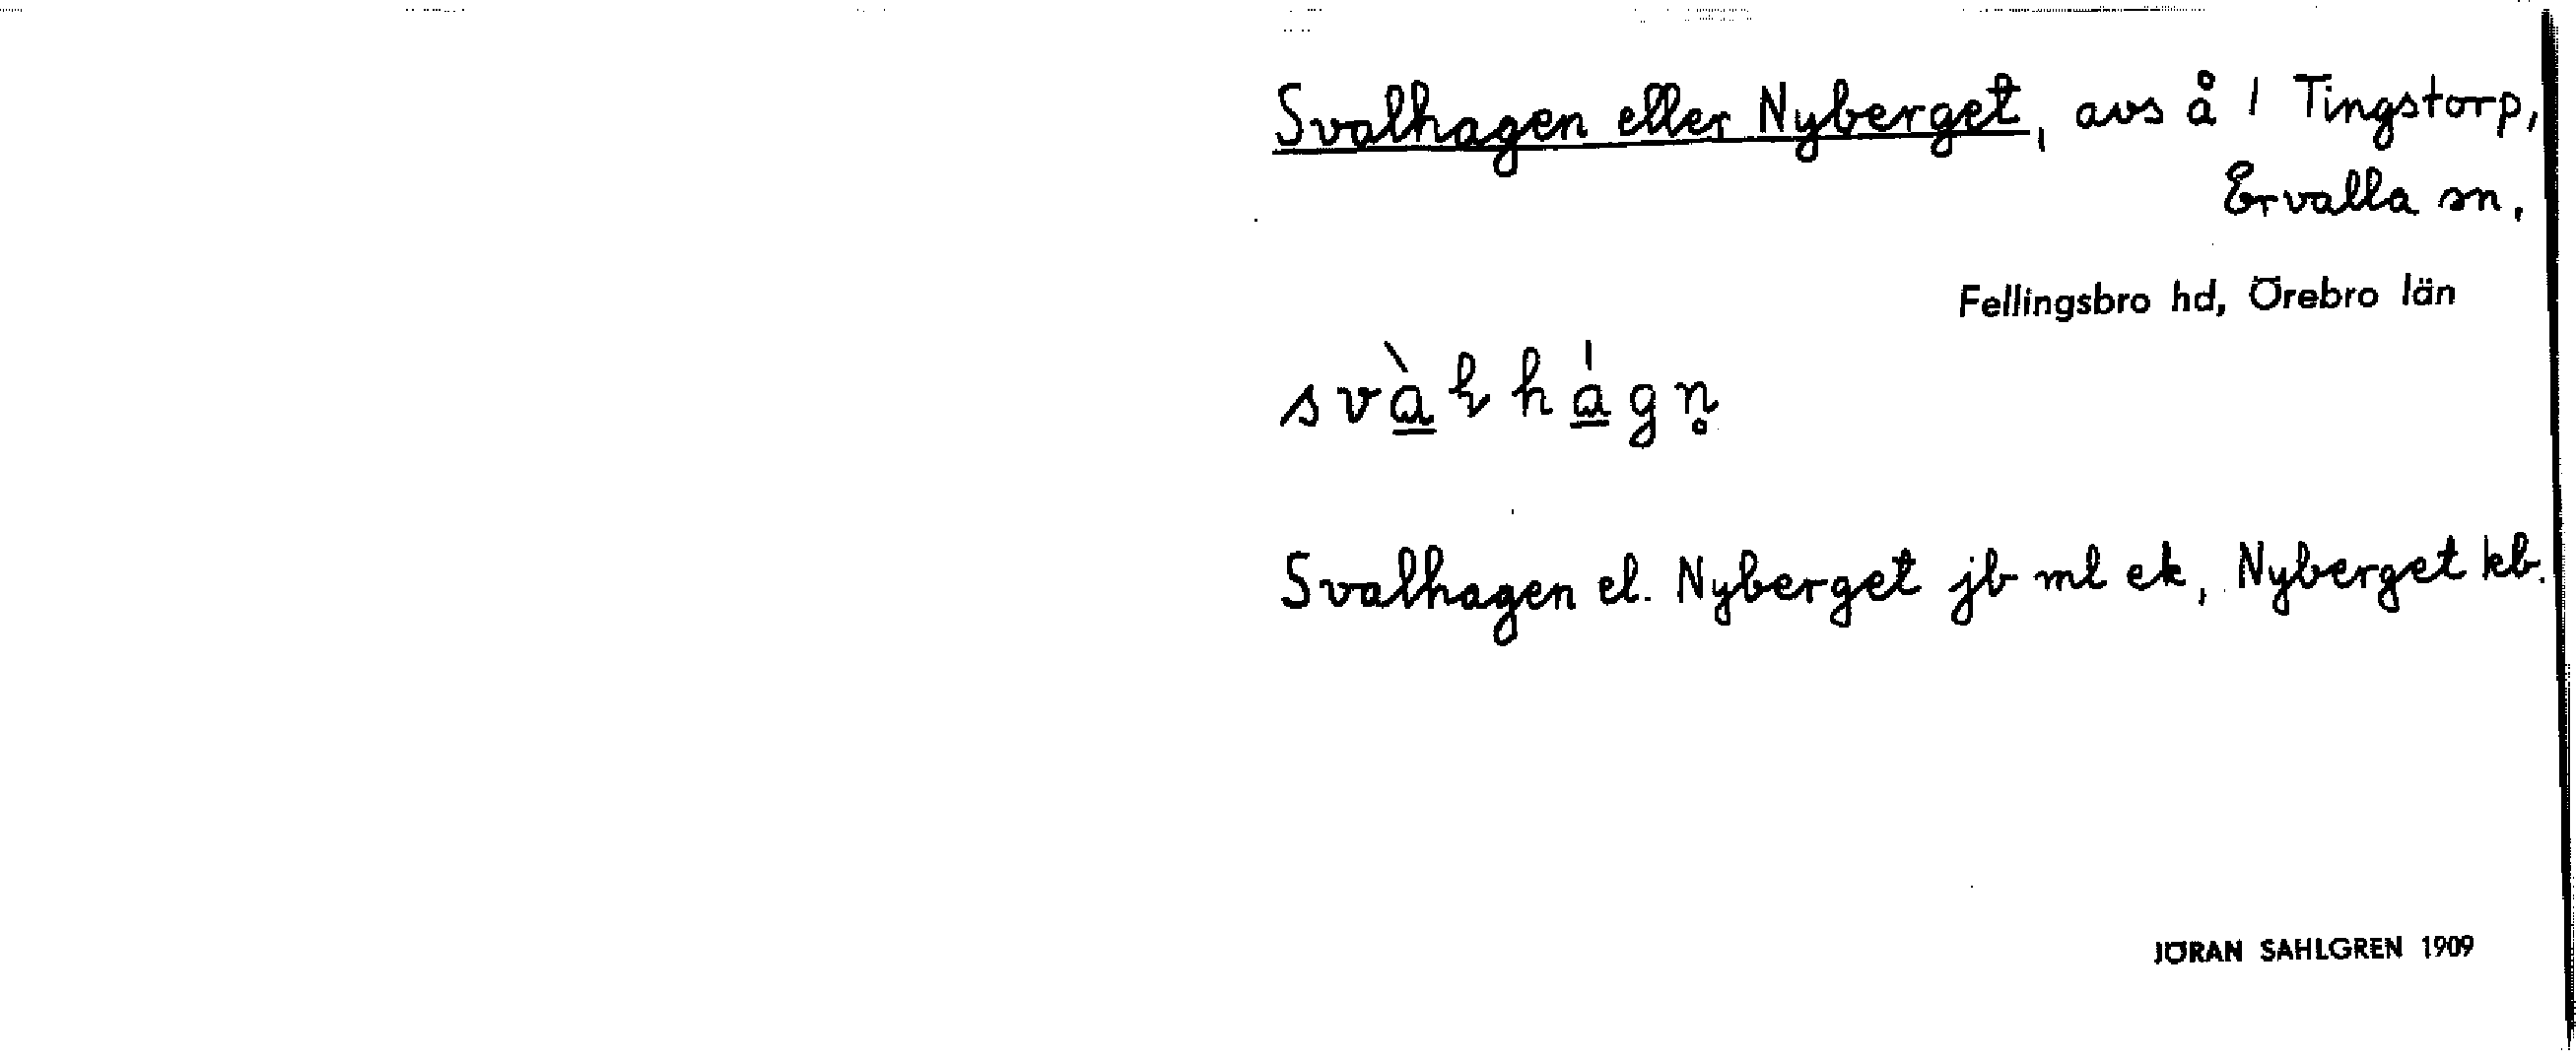 Svalhagen eller Nyberget, avs å 1 Tingstorp,
Ervalla sn,
Fellingsbro hd, Örebro län
svàɫhágn̥
Svalhagen el. Nyberget jb ml ek, Nyberget kb.
JÖRAN SAHLGREN 1909